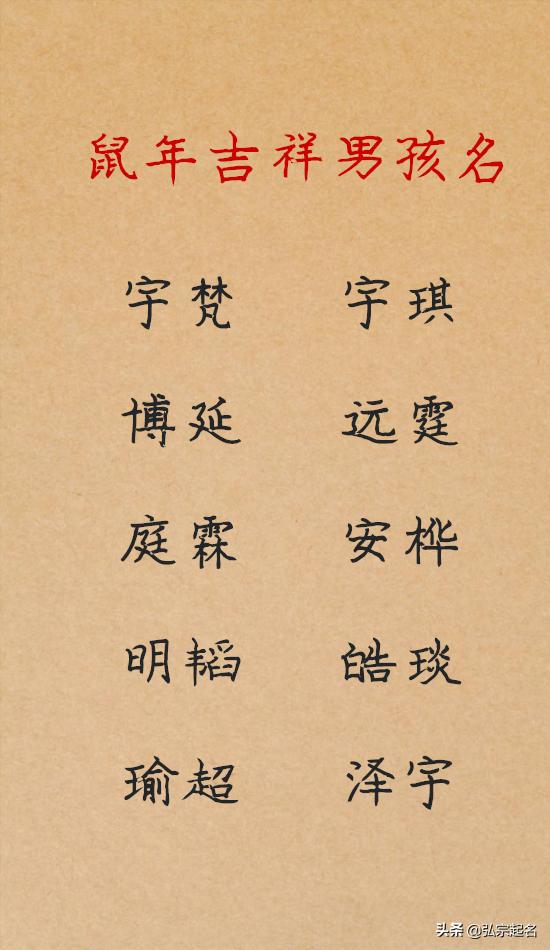 鼠年吉祥男孩名
宇梵 宇琪
博延 远霆
庭霖 安桦
明韬 皓琰
瑜超 泽宇
头条 @弘宗起名